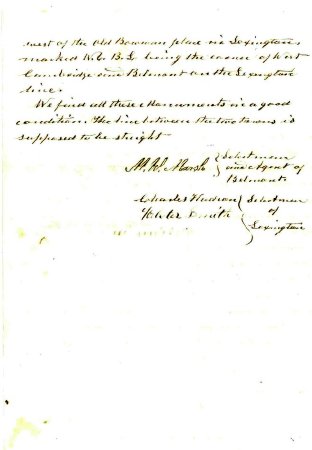 west of the Old Bowman place in Lexington
marked W.C. B.L. being the corner of West
Cambridge and Belmont on the Lexington
line.
We find all these Monuments in a good
condition The line between the two towns is
supposed to be straight
M. W. Marsh { Selectman
and Agent of
Belmont
Charles Hudson } Selectmen
Webster Smith } of
Lexington